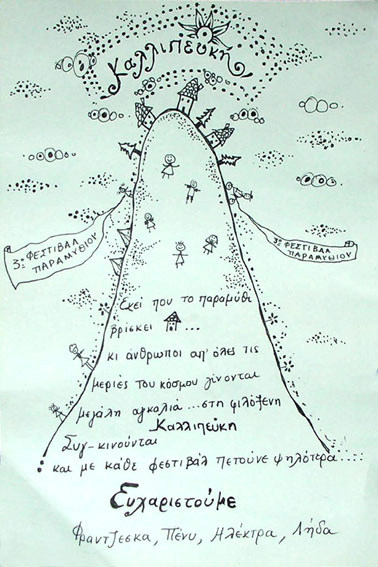 Καλλιπεύκη
3ο ΦΕΣΤΙΒΑΛ
ΠΑΡΑΜΥΘΙΟΥ
3ο ΦΕΣΤΙΒΑΛ
ΠΑΡΑΜΥΘΙΟΥ
Εκεί που το παραμύθι
βρίσκει ...
κι άνθρωποι απ' όλες τις
μεριές του κόσμου γίνονται
μεγάλη αγκαλιά ... στη φιλόξενη
Καλλιπεύκη
Συγ-κινούνται
και με κάθε φεστιβάλ πετούνε ψηλότερα.....
Ευχαριστούμε
Φραντζεσκα, Πένυ, Ηλέκτρα, Λήδα